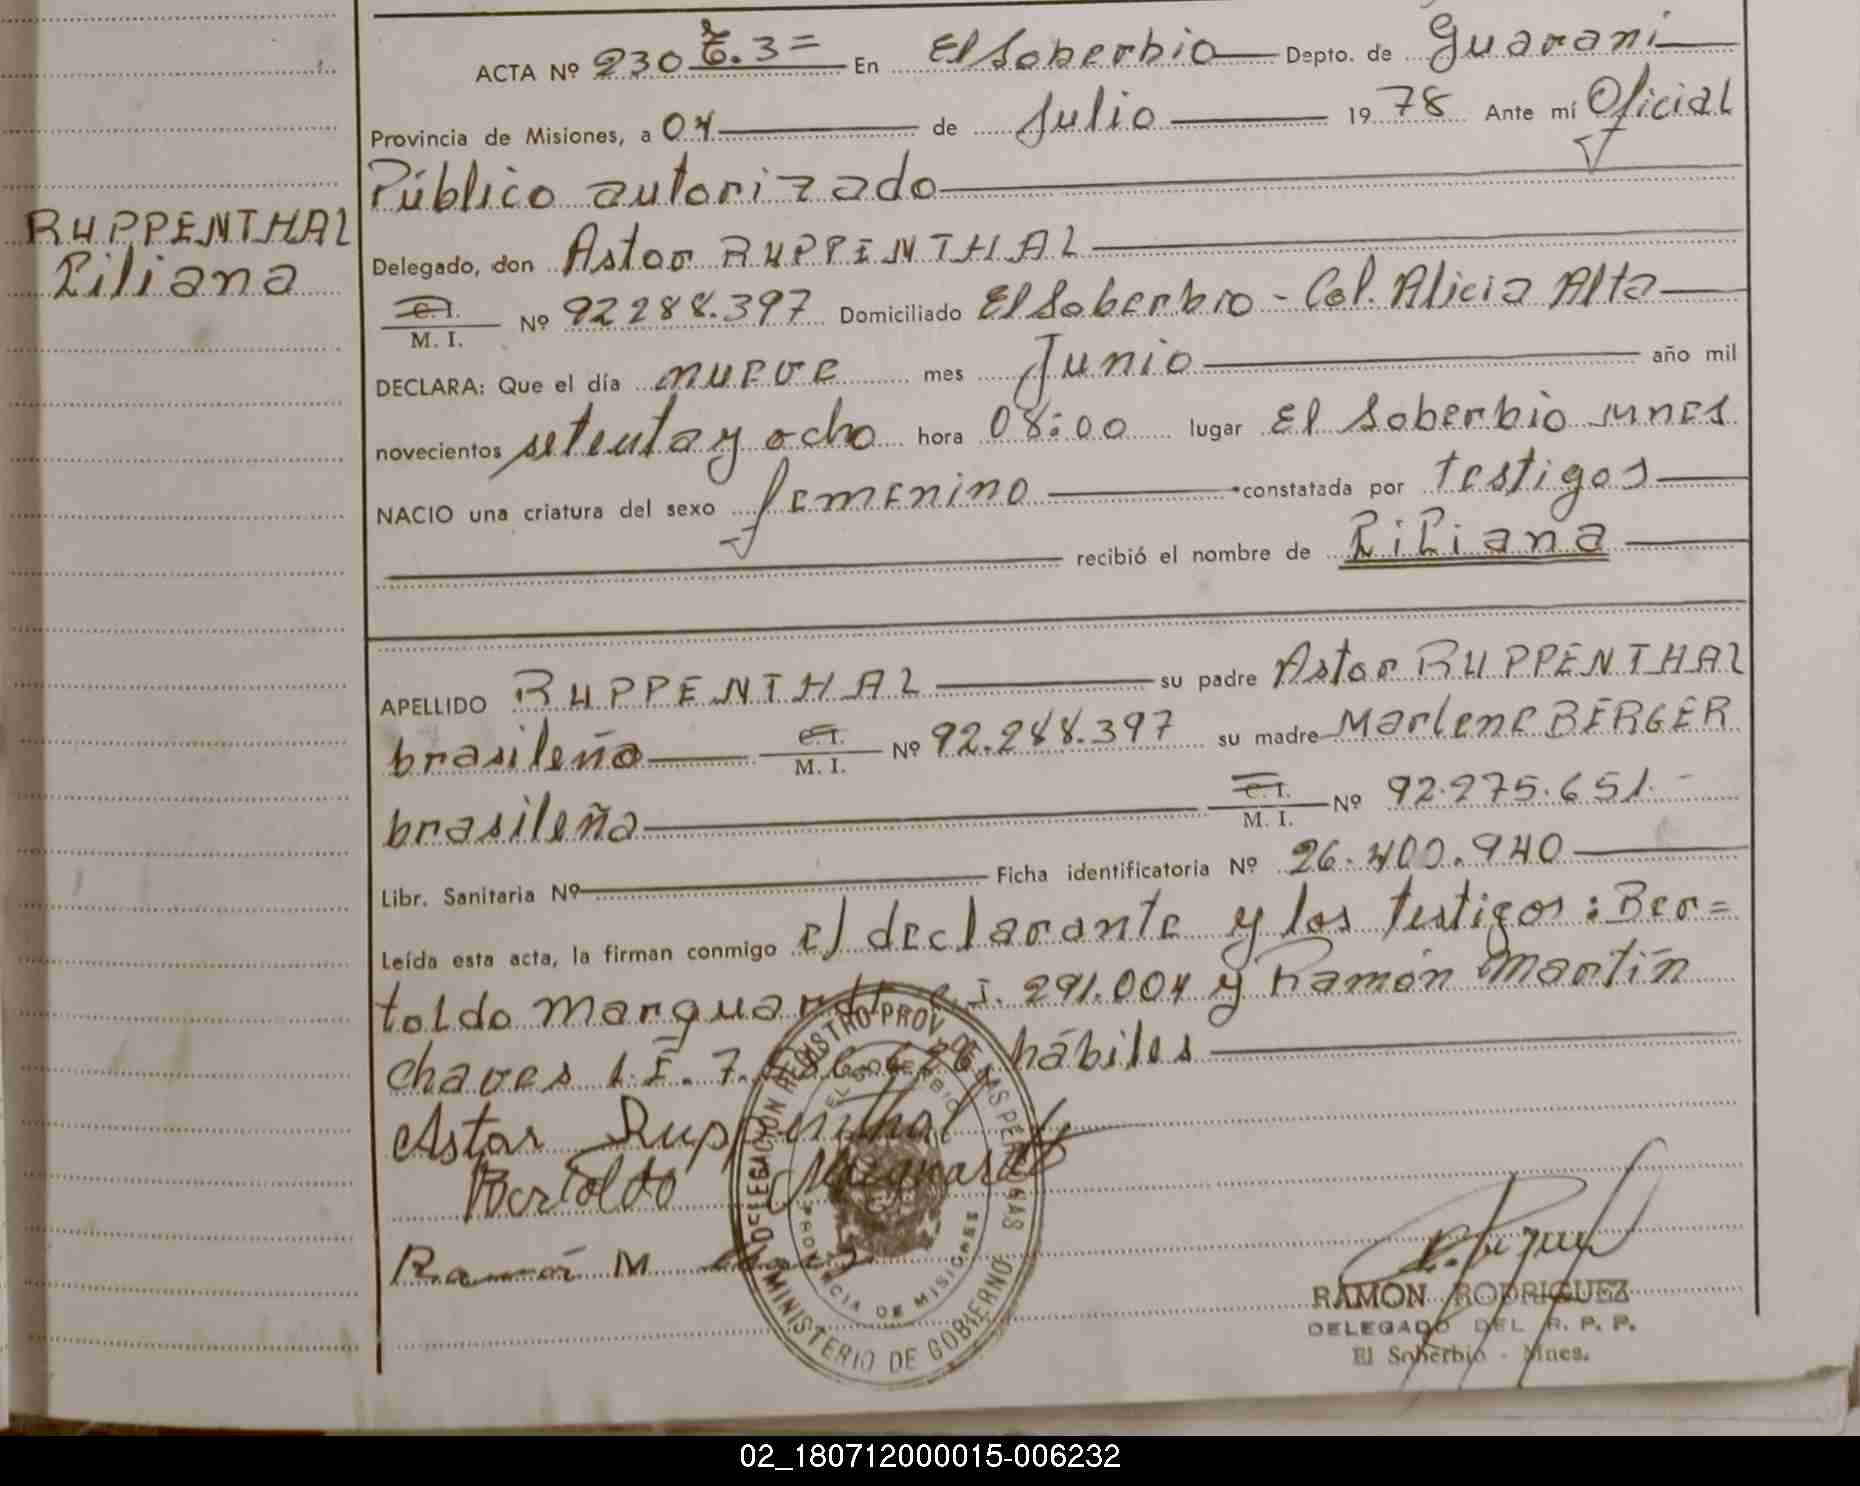 ACTA Nº 230 T.3= En El Soberbio Depto. de Guaraní
Provincia de Misiones, a 04 de Julio 1978 Ante mí Oficial
Público autorizado
RUPPENTHAL
Liliana
Delegado, don Astor RUPPENTHAL
C.I.
M. I. Nº 92288.397 Domiciliado El Soberbio - Col. Alicia Alta
DECLARA: Que el día nueve mes Junio año mil
novecientos setenta y ocho hora 08:00 lugar El Soberbio Mnes
NACIO una criatura del sexo femenino constatada por testigos
recibió el nombre de Liliana
APELLIDO RUPPENTHAL su padre Astor RUPPENTHAL
brasileño C.I.
M. I. Nº 92.288.397 su madre Marlene BERGER
brasileña C.I.
M. I. Nº 92.275.651.-
Libr. Sanitaria Nº Ficha identificatoria Nº 26.400.940
Leída esta acta, la firman conmigo el declarante y los testigos: Ber=
toldo Marquardt C.I. 291.004 y Ramón Martín
Chaves L.E. 7. hábiles
Astor Ruppenthal
Bertoldo Marquardt
Ramón M Chaves
DELEGACION REGISTRO PROV. DE LAS PERSONAS
EL SOBERBIO
PROVINCIA DE MISIONES
MINISTERIO DE GOBIERNO
RAMON RODRIGUEZ
DELEGADO DEL R. P. P.
El Soberbio - Mnes.
02_180712000015-006232